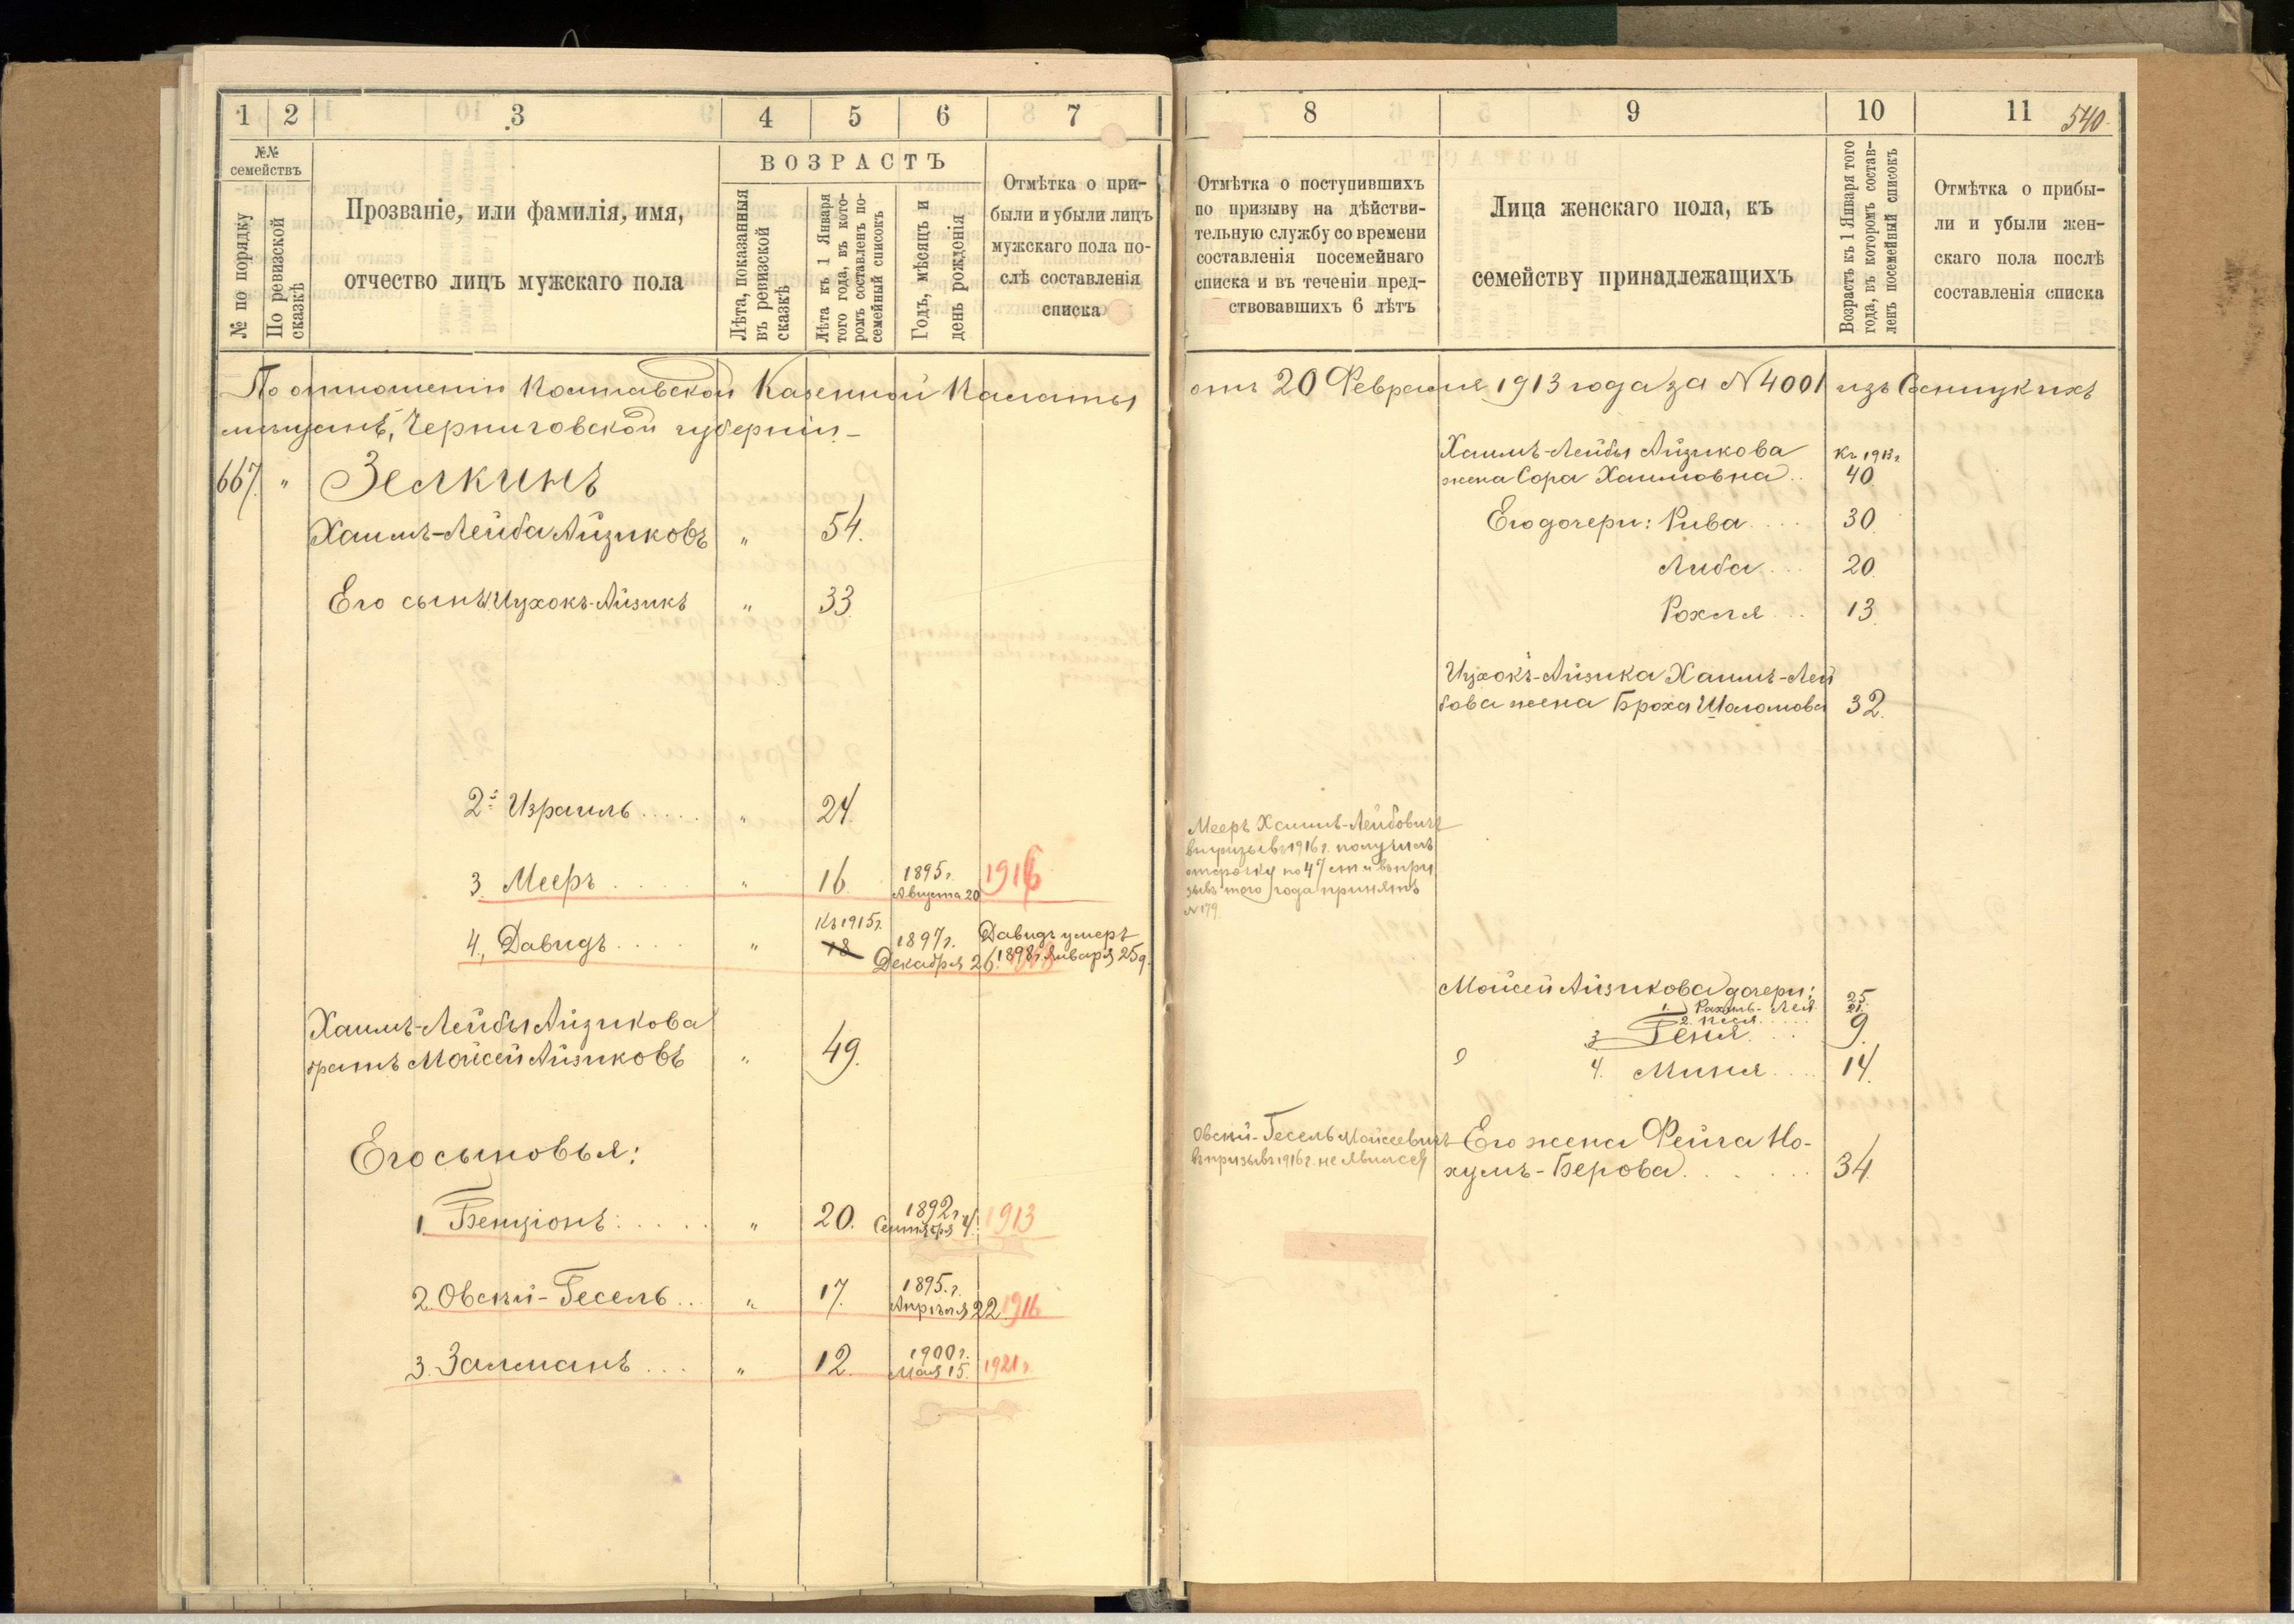 1 2 3 4 5 6 7
№№ семействъ
№ по порядку
По ревизской сказкѣ
Прозваніе, или фамилія, имя,
отчество лицъ мужскаго пола
ВОЗРАСТЪ
Лѣта, показанныя
въ ревизской
сказкѣ
Лѣта къ 1 Января
того года, въ кото-
ромъ составленъ по-
семейный списокъ
Годъ, мѣсяцъ и
день рожденія
Отмѣтка о при-
были и убыли лицъ
мужскаго пола по-
слѣ составленія
списка
По отношенію Полтавской Казенной Палаты
мѣщанъ, Черниговской губерніи.–
667. " Зелкинъ
Хаимъ-Лейба Айзиковъ " 54.
Его сынъ: Ицхокъ-Айзикъ " 33
2й Израиль ..... " 24.
3 Мееръ ..... " 16 1895 г.
Августа 20 1916
Къ 1915 г.
4., Давидъ ..... " 18 1897 г.
Декабря 26
Давидъ умеръ
1898 г. Января 25 д.
Хаимъ-Лейбы Айзикова
братъ Мойсей Айзиковъ " 49.
Его сыновья:
1 Бенціонъ ..... " 20. 1892 г.
Сентября 4. 1913
2. Овсѣй-Гесель ... " 17. 1895. г.
Апрѣля 22 1916
3. Залманъ ... " 12. 1900 г.
Мая 15. 1921 г.
8 9 10 11
540
Отмѣтка о поступившихъ
по призыву на дѣйстви-
тельную службу со времени
составленія посемейнаго
списка и въ теченіи пред-
ствовавшихъ 6 лѣтъ
Лица женскаго пола, къ
семейству принадлежащихъ
Возрастъ къ 1 Января того
года, въ которомъ состав-
ленъ посемейный списокъ
Отмѣтка о прибы-
ли и убыли жен-
скаго пола послѣ
составленія списка
отъ 20 Февраля 1913 года за № 4001 изъ Сосницкихъ
Хаимъ-Лейбы Айзикова Къ 1913 г.
жена Сора Хаимовна .. 40
Его дочери: Рива .... 30
Либа ... 20
Рохля ... 13
Ицхокъ-Айзика Хаимъ-Лей
бова жена Броха Шоломова 32.
Мееръ Хаимъ-Лейбовичъ
въ призывъ 1916 г. получилъ
отсрочку по 47 ст и въ при
зывъ того года принятъ
№ 179.
Мойсей Айзикова дочери:
1. Рахиль-Лея 25.
2. Песя ..... 21.
3 Геня ... 9.
4. Миня .... 14.
Овсѣй-Гесель Мойсеевичъ
въ призывъ 1916 г. не явился
Его жена Фейга Но-
хумъ-Берова ..... 34